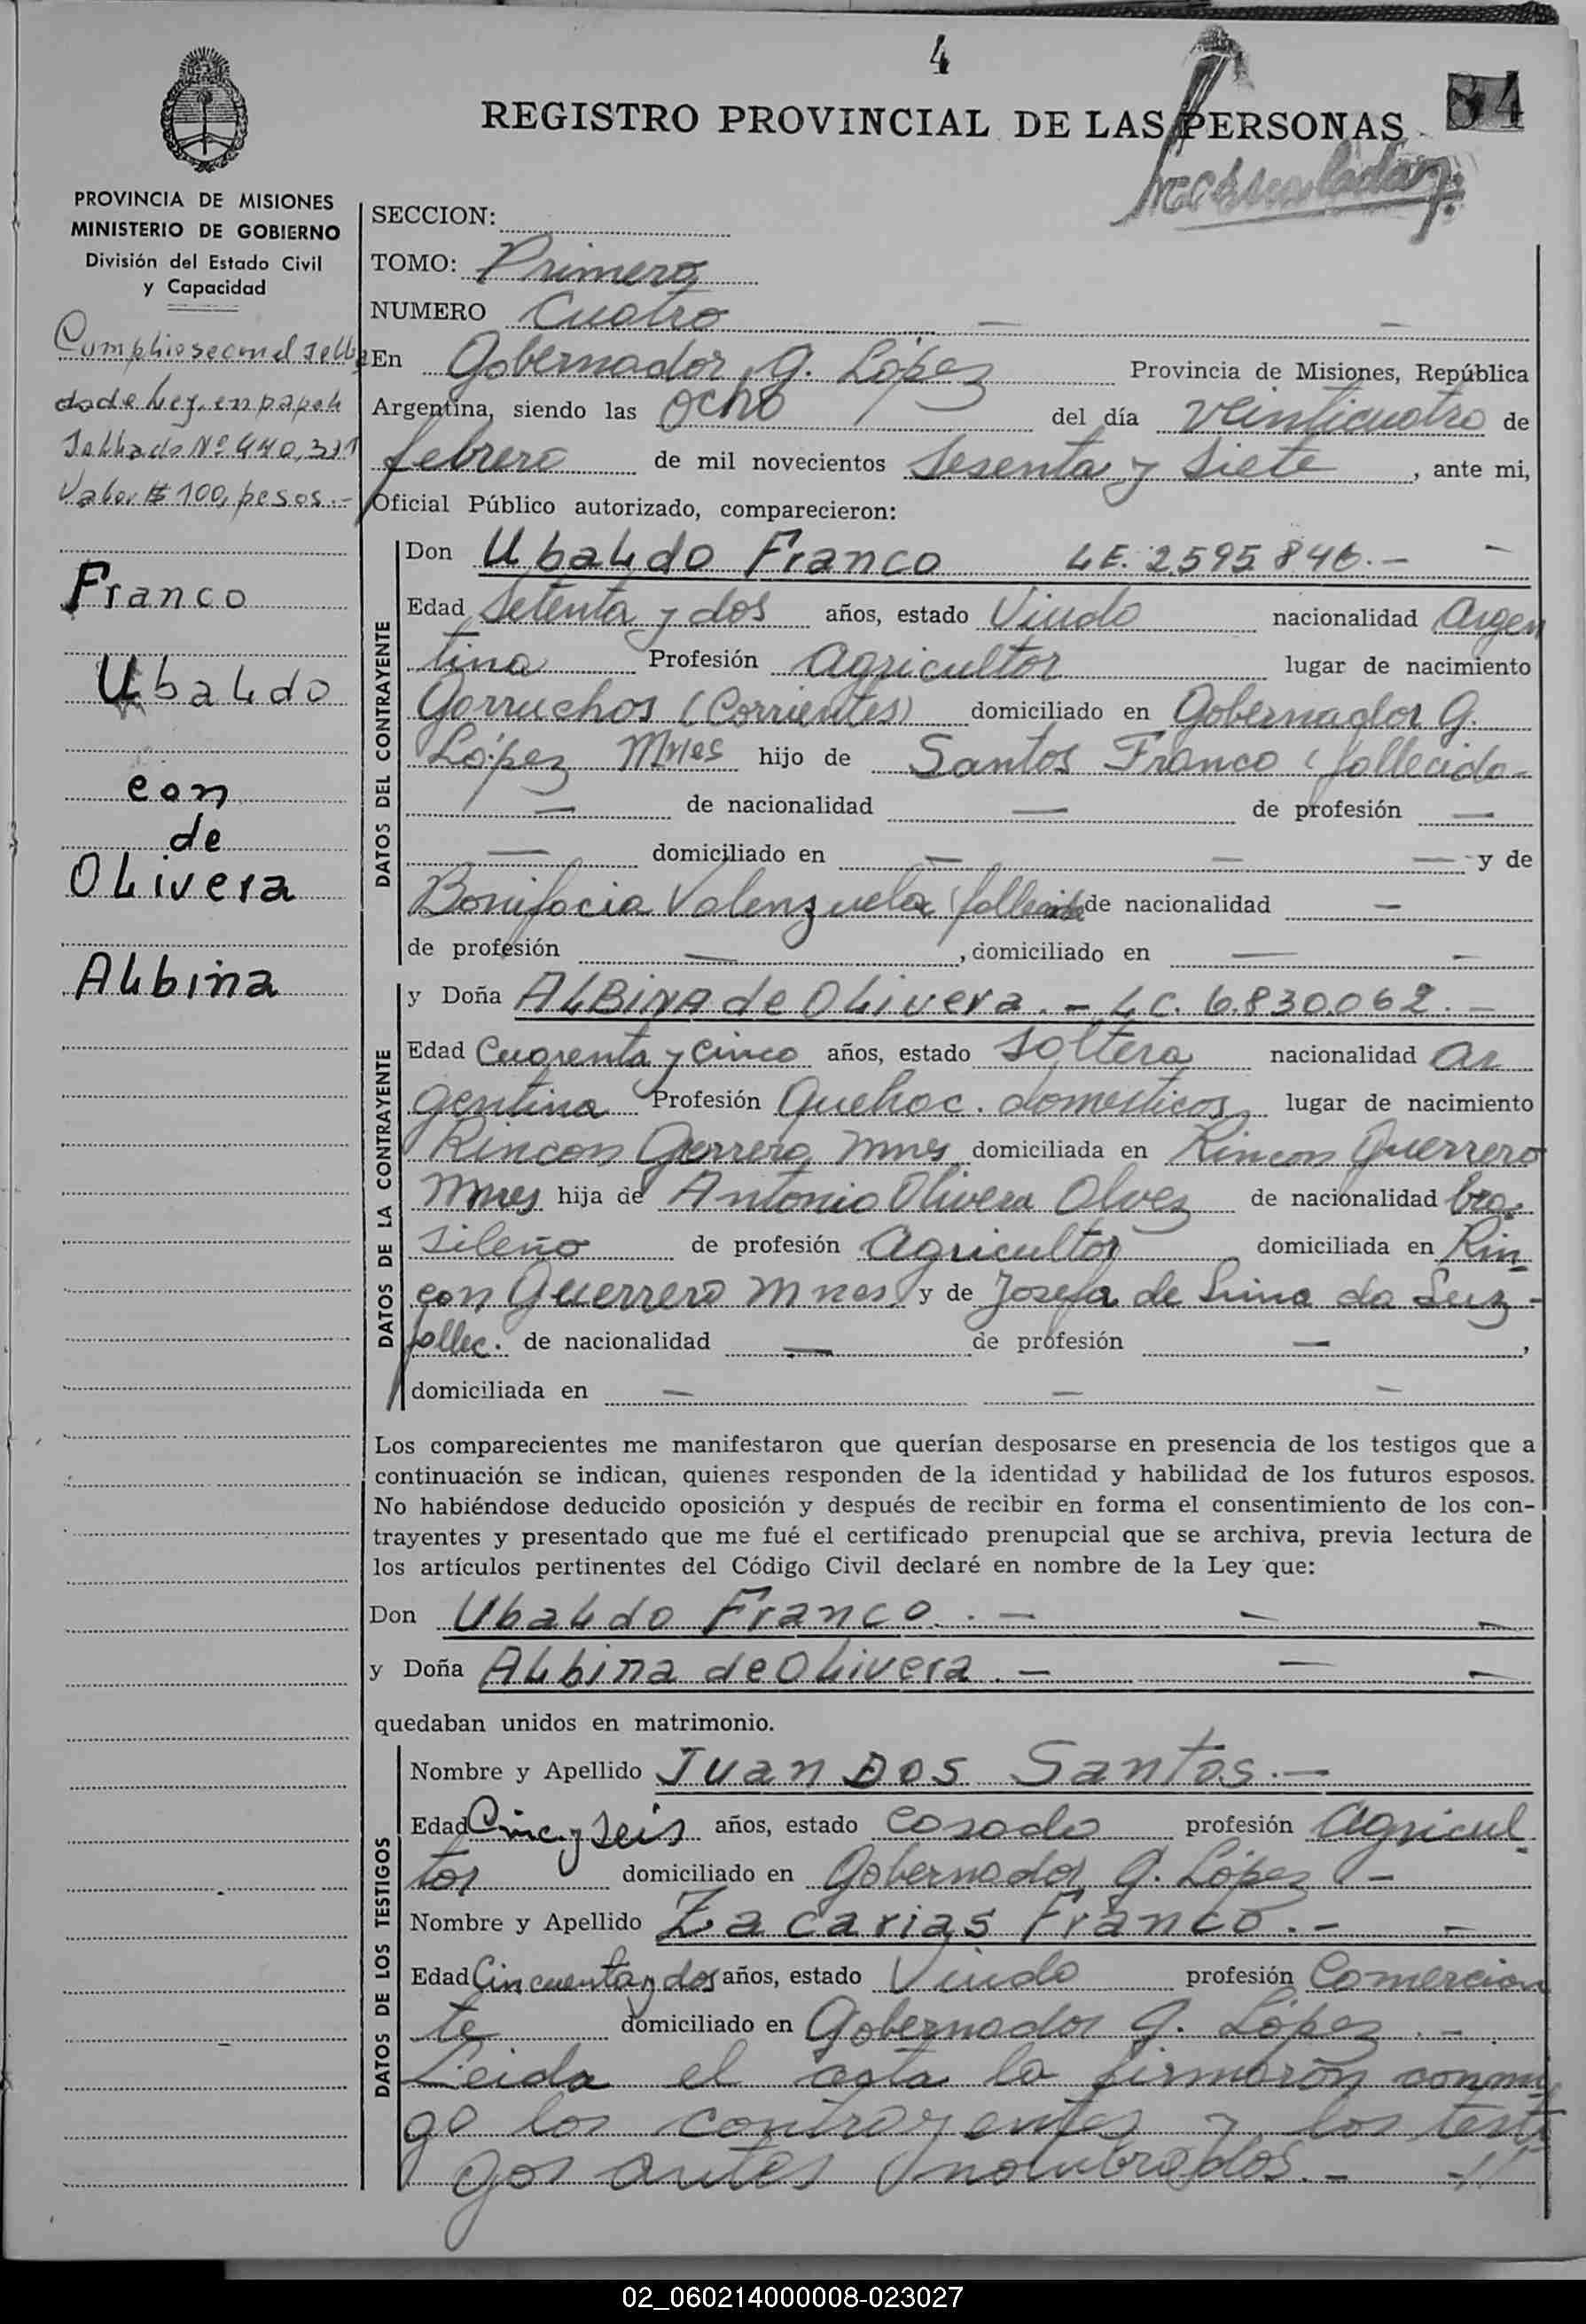 4
84
REGISTRO PROVINCIAL DE LAS PERSONAS
PROVINCIA DE MISIONES
MINISTERIO DE GOBIERNO
División del Estado Civil
y Capacidad
Valor $ 100, pesos.-
Franco
Ubaldo
con
de
Olivera
Albina
SECCION:
TOMO: Primero
NUMERO Cuatro -
En Gobernador G. López Provincia de Misiones, República
Argentina, siendo las ocho del día veinticuatro de
febrero de mil novecientos sesenta y siete, ante mi,
Oficial Público autorizado, comparecieron:
DATOS DEL CONTRAYENTE
Don Ubaldo Franco L.E. 2.595.846.-
Edad Setenta y dos años, estado Viudo nacionalidad Argen
tina Profesión Agricultor lugar de nacimiento
Garruchos (Corrientes) domiciliado en Gobernador G.
López Mnes hijo de Santos Franco (fallecido-
- de nacionalidad - de profesión -
- domiciliado en - - - y de
Bonifacia Valenzuela (fallecida de nacionalidad -
de profesión -, domiciliado en - -
DATOS DE LA CONTRAYENTE
y Doña ALBINA de Olivera.- L.C. 6.830.062.-
Edad Cuarenta y cinco años, estado soltera nacionalidad ar
gentina Profesión Quehac. domesticos lugar de nacimiento
Rincon Guerrero Mnes domiciliada en Rincon Guerrero
Mnes hija de Antonio Olivera Olvez de nacionalidad bra-
sileño de profesión Agricultor domiciliada en Rin
con Guerrero Mnes y de Josefa de Lima da Luz-
fallec. de nacionalidad - de profesión -,
domiciliada en - - -
Los comparecientes me manifestaron que querían desposarse en presencia de los testigos que a
continuación se indican, quienes responden de la identidad y habilidad de los futuros esposos.
No habiéndose deducido oposición y después de recibir en forma el consentimiento de los con-
trayentes y presentado que me fué el certificado prenupcial que se archiva, previa lectura de
los artículos pertinentes del Código Civil declaré en nombre de la Ley que:
Don Ubaldo Franco.- - -
y Doña Albina de Olivera.- - -
quedaban unidos en matrimonio.
DATOS DE LOS TESTIGOS
Nombre y Apellido Juan Dos Santos.-
Edad Cinc. y seis años, estado casado profesión Agricul-
tor domiciliado en Gobernador G. López -
Nombre y Apellido Zacarias Franco.- -
Edad Cincuenta y dos años, estado Viudo profesión Comercian
te domiciliado en Gobernador G. López.-
Leida el acta la firmaron conmi
go los contrayentes y los testi
gos antes nombrados.-
02_060214000008-023027